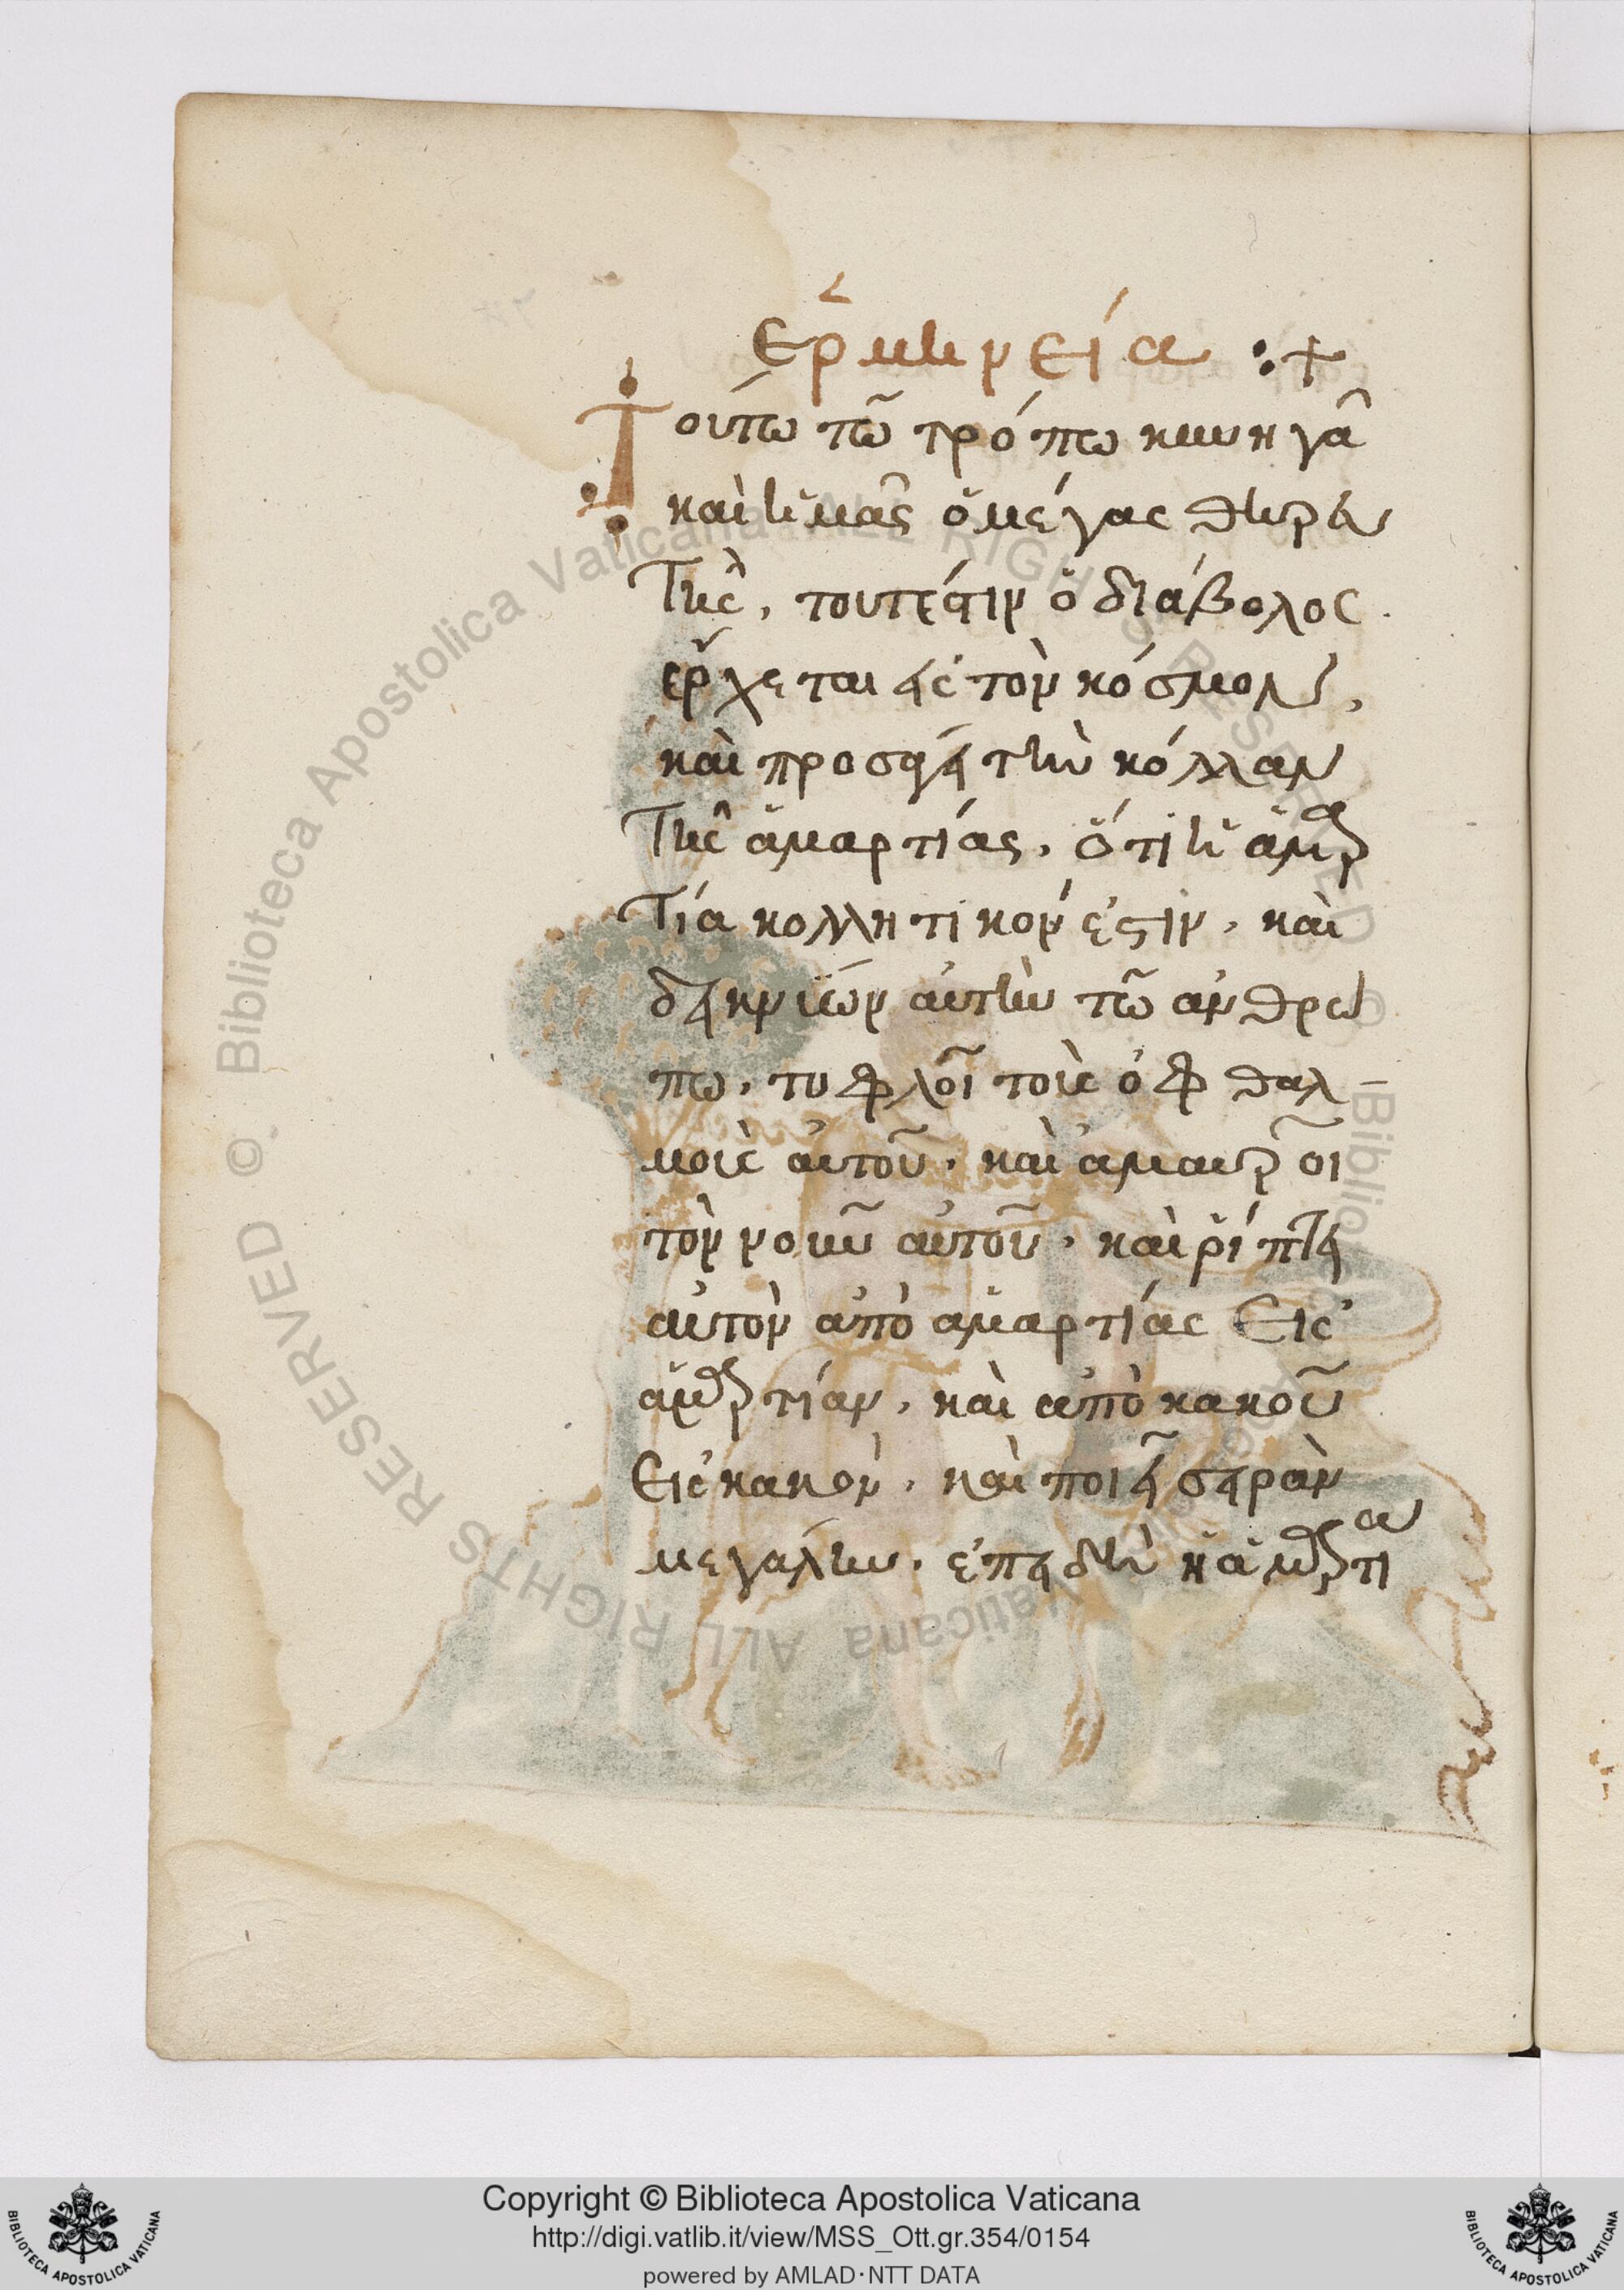 Ἑρμηνεία :+
Τούτω τῶ τρόπω κυνηγᾶ
καὶ ἡμᾶς ὁ μέγας θηρευ
τὴς, τουτέστιν ὁ διάβολος.
ἔρχεται εἰς τὸν κόσμον,
καὶ προσφέρει τὴν κόλλαν
τῆς ἁμαρτίας, ὅτι ἡ ἁμαρ
τία κολλητικόν ἐστιν, καὶ
δεικνύων αὐτὴν τῶ ἀνθρώ
πω, τυφλοῖ τοὺς ὀφθαλ
μοὺς αὐτοῦ, καὶ ἀμαυροῖ
τὸν νοῦν αὐτοῦ, καὶ ῥίπτει
αὐτὸν ἀπὸ ἁμαρτίας εἰς
ἁμαρτίαν, καὶ ἀπὸ κακοῦ
εἰς κακὸν, καὶ ποιεῖ σειρὰν
μεγάλην, ἐπειδὴ ἡ ἁμαρτία
© Biblioteca Apostolica Vaticana ALL RIGHTS RESERVED © Biblioteca Apostolica Vaticana ALL RIGHTS RESERVED
Copyright © Biblioteca Apostolica Vaticana
http://digi.vatlib.it/view/MSS_Ott.gr.354/0154
powered by AMLAD·NTT DATA
BIBLIOTECA APOSTOLICA VATICANA
BIBLIOTECA APOSTOLICA VATICANA